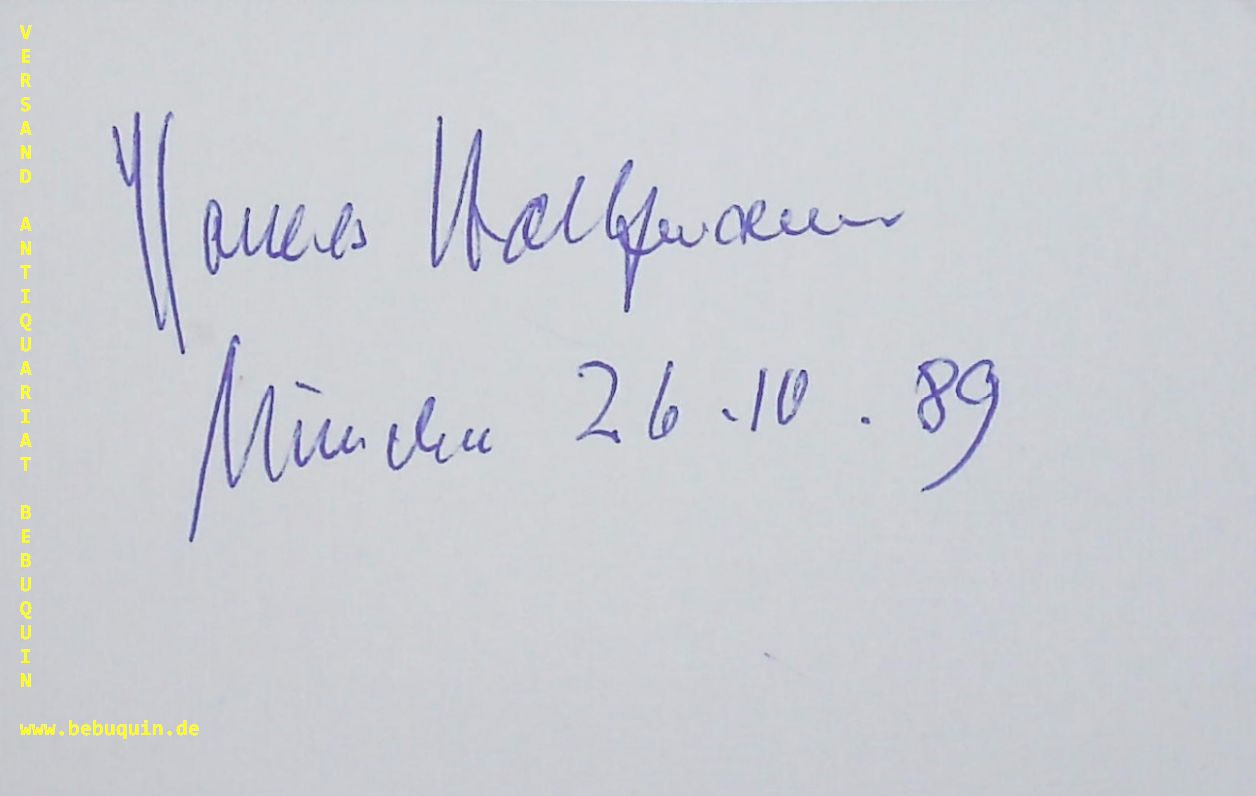 VERSAND ANTIQUARIAT BEBUQUIN
Hannes
München 26.10.89
www.bebuquin.de